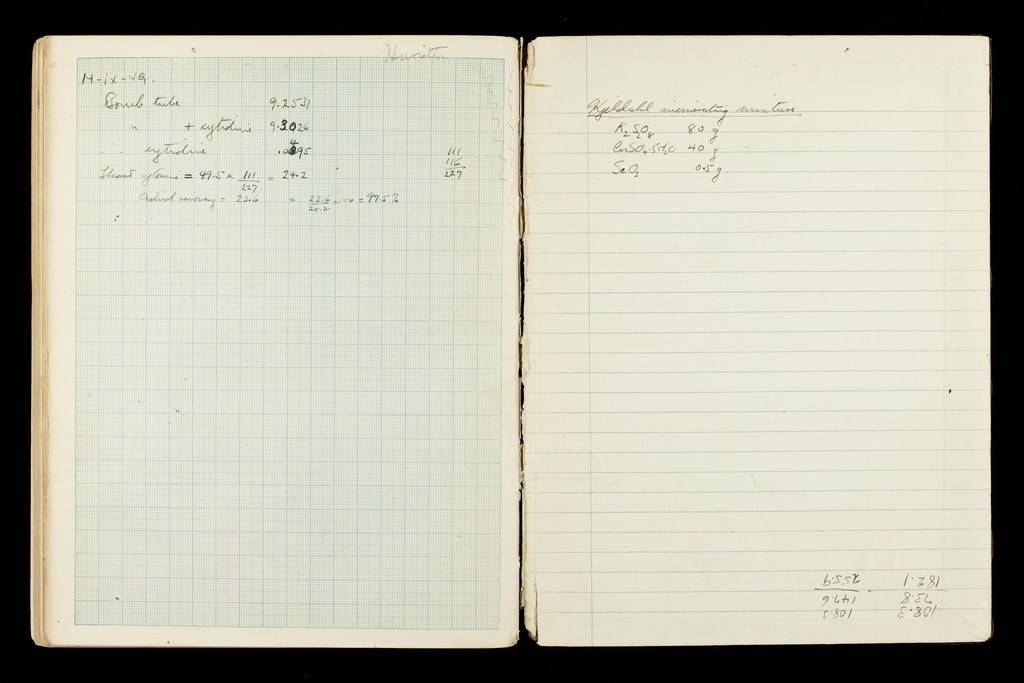 Henrietta
14-ix-49.
Bomb tube 9.2531
" + cytidine 9.3026
" " cytidine .0495
111
116
227
Theoret cytosine = 49.5 × 111/227 = 24.2
Actual recovery = 23.6 = 23.6/24.2 × 100 = 97.5%
Kjeldahl incinerating mixture
K2S2O8 80 g
CuSO4.5H2O 40 g
SeO2 0.5 g.
108.3 108.3
73.8 147.6
182.1 255.9